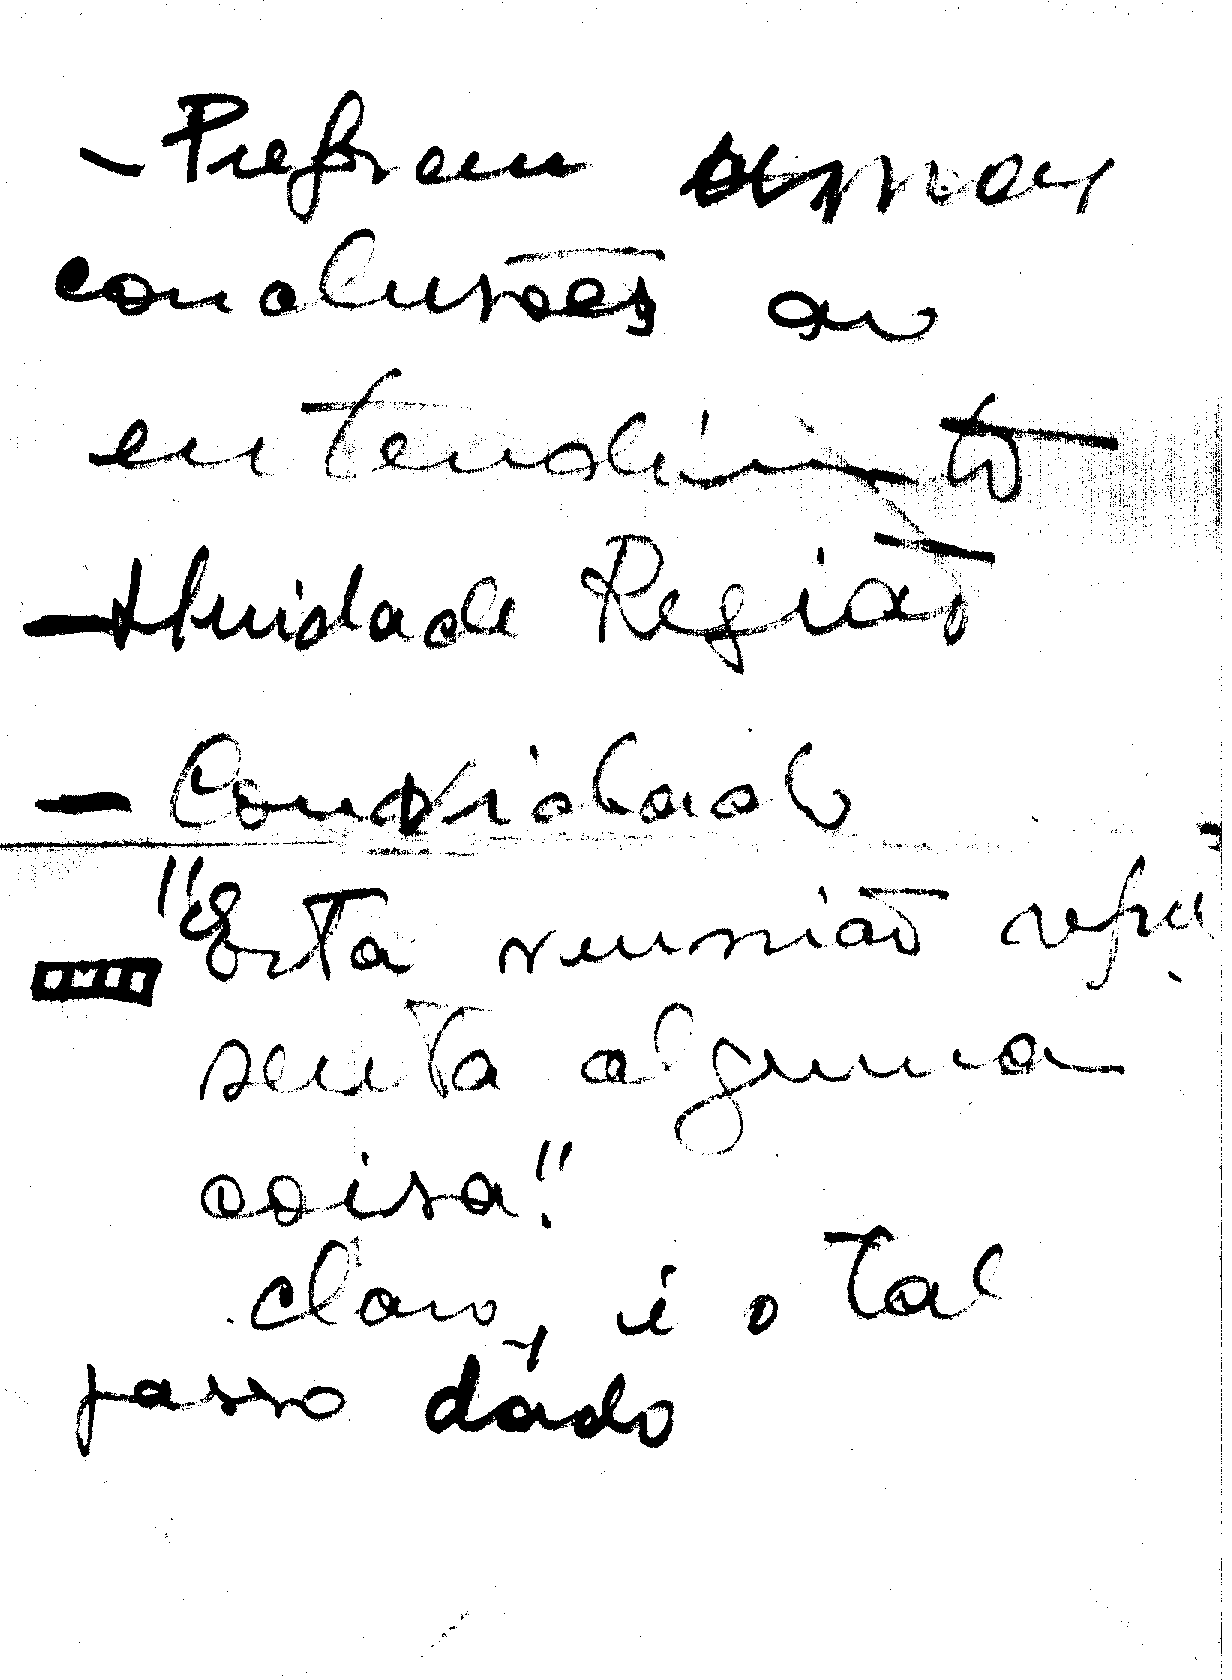 - Preferem
conclusões ou
entendimento
- Unidade Região
- Convidado
"Esta reunião repre-
senta alguma
coisa!"
claro, é o tal
passo dado